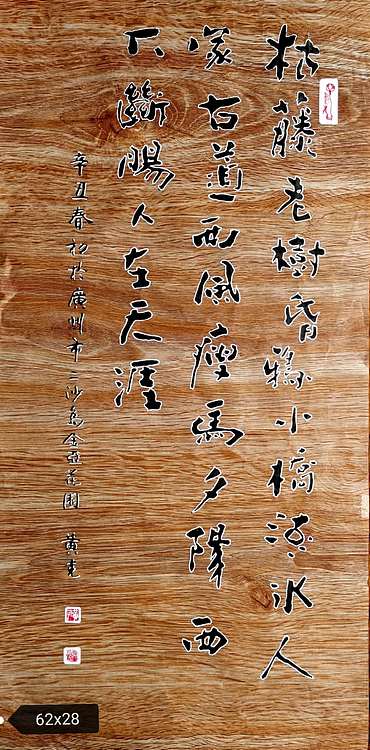 枯藤老樹昏鴉小橋流水人
家古道西風瘦馬夕陽西
下斷腸人在天涯
辛丑春初於廣州市二沙島金亞花園 黃克
62x28